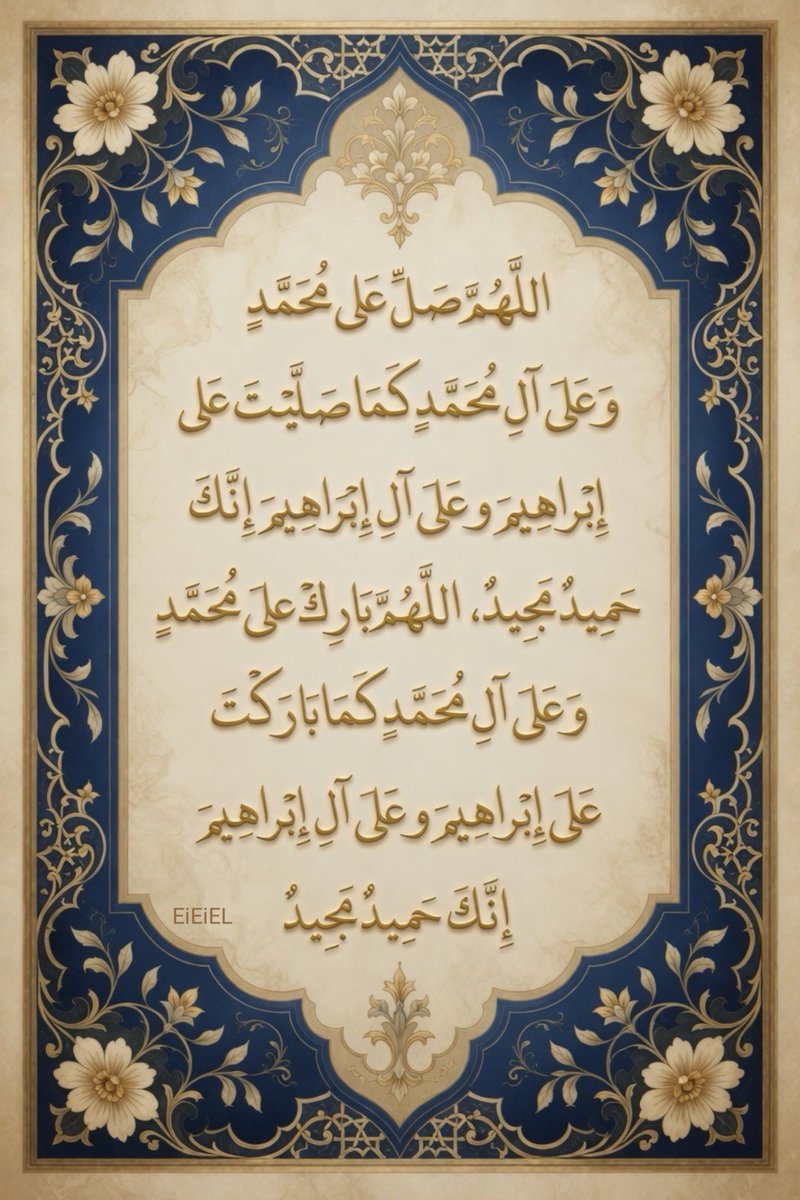 اللَّهُمَّ صَلِّ عَلى مُحَمَّدٍ
وَعَلَى آلِ مُحَمَّدٍ كَمَا صَلَّيْتَ عَلى
إِبْراهِيمَ وعَلَى آلِ إِبْراهِيمَ إِنَّكَ
حَمِيدٌ مَجِيدٌ، اللَّهُمَّ بَارِكْ علَى مُحَمَّدٍ
وَعَلَى آلِ مُحَمَّدٍ كَمَا بَارَكْتَ
عَلَى إِبْراهِيمَ وعَلَى آلِ إِبْراهِيمَ
إِنَّكَ حَمِيدٌ مَجِيدٌ
EiEiEL